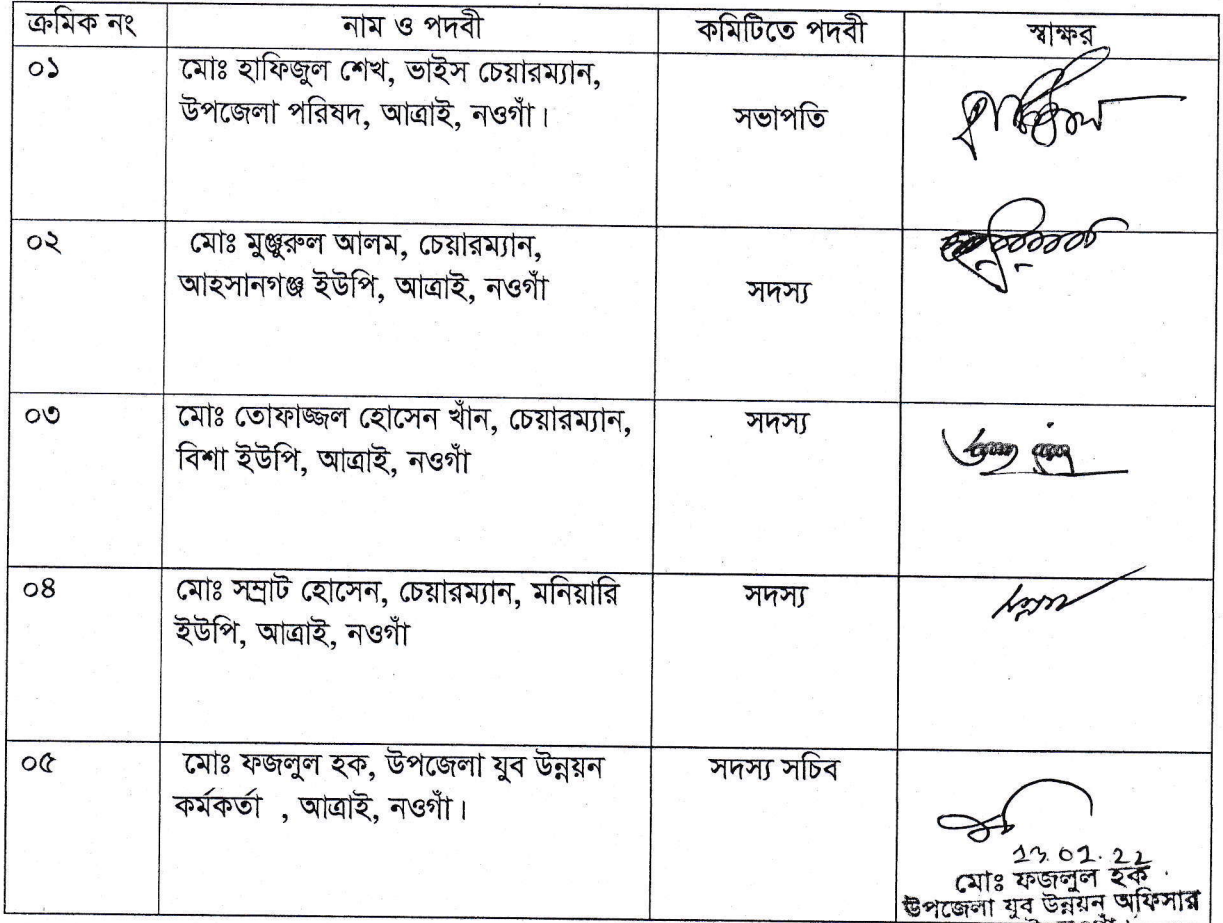 ক্রমিক নং নাম ও পদবী কমিটিতে পদবী স্বাক্ষর
০১ মোঃ হাফিজুল শেখ, ভাইস চেয়ারম্যান,
উপজেলা পরিষদ, আত্রাই, নওগাঁ। সভাপতি
০২ মোঃ মুঞ্জুরুল আলম, চেয়ারম্যান,
আহসানগঞ্জ ইউপি, আত্রাই, নওগাঁ সদস্য
০৩ মোঃ তোফাজ্জল হোসেন খাঁন, চেয়ারম্যান, সদস্য
বিশা ইউপি, আত্রাই, নওগাঁ
০৪ মোঃ সম্রাট হোসেন, চেয়ারম্যান, মনিয়ারি সদস্য
ইউপি, আত্রাই, নওগাঁ
০৫ মোঃ ফজলুল হক, উপজেলা যুব উন্নয়ন সদস্য সচিব
কর্মকর্তা , আত্রাই, নওগাঁ।
মোঃ ফজলুল হক
উপজেলা যুব উন্নয়ন অফিসার